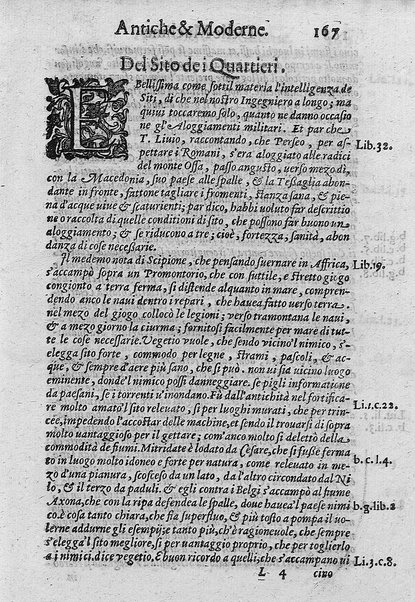 Antiche & Moderne. 167
Del Sito de i Quartieri.
E Bellissima come sottil materia l'intelligenza de
Siti, di che nel nostro Ingegniero a longo; ma
quiui toccaremo solo, quanto ne danno occasio
ne gl'Aloggiamenti militari. Et par che
T. Liuio, raccontando, che Perseo, per as- Lib.32.
pettare i Romani, s'era aloggiato alle radici
del monte Ossa, passo angusto, verso mezo dì,
con la Macedonia, suo paese alle spalle, & la Tessaglia abon-
dante in fronte, fattone tagliare i fromenti, stanza sana, & pie-
na d'acque uiue & scaturienti; par dico, habbi uoluto far descrittio
ne o raccolta di quelle conditioni di sito, che possono far buono un
aloggiamento; & se riducono a tre; cioè, fortezza, sanità, abon
danza di cose necessarie.
Il medemo nota di Scipione, che pensando suernare in Affrica, Lib.19.
s'accampò sopra un Promontorio, che con suttile, e stretto giogo
congionto a terra ferma, si distende alquanto in mare, compren-
dendo anco le naui dentro i repari, che hauea fatto verso terra.
nel mezo del giogo collocò le legioni; verso tramontana le naui,
& a mezo giorno la ciurma; fornitosi facilmente per mare di tut-
te le cose necessarie. Vegetio vuole, che sendo vicino l'nimico, s'-
elegga sito forte, commodo per legne, strami, pascoli, & ac-
que, & sempre d'aere più sano, che si può. non ui sia uicino luogo
eminente, donde l'nimico possi danneggiare. se pigli informatione
da paesani, se i torrenti u'inondano. Fù dall'antichità nel fortifica-
re molto amato'l sito releuato, sì per luoghi murati, che per trin- Li.1.c.22.
cee, impedendo l'accostar delle machine, et sendo il trouarsi di sopra
molto vantaggioso per il gettare; com'anco molto si delettò della
commodità de fiumi. Mitridate è lodato da Cesare, che si fusse ferma
to in luogo molto idoneo e forte per natura, come releuato in me- b.c.l.4.
zo d'una pianura, scosceso da un lato, da l'altro circondato dal Ni-
lo, & il terzo da paduli. & egli contra i Belgi s'accampò al fiume
Axona, che con la ripa defendea le spalle, doue hauea'l paese nimi b.g.lib.2
co. è cosa tanto chiara, che fia superfluo, & più tosto a pompa il uo-
lerne addurne gli esempij; e tanto più, ch'è ragioneuole, che sempre
s'elegga'l sito megliore, sì per uantaggio proprio, che per toglierlo
a i nimici. dice vegetio. E buon ricordo a quelli; che s'accampano ui Li.3.c.8.
L 4 cino